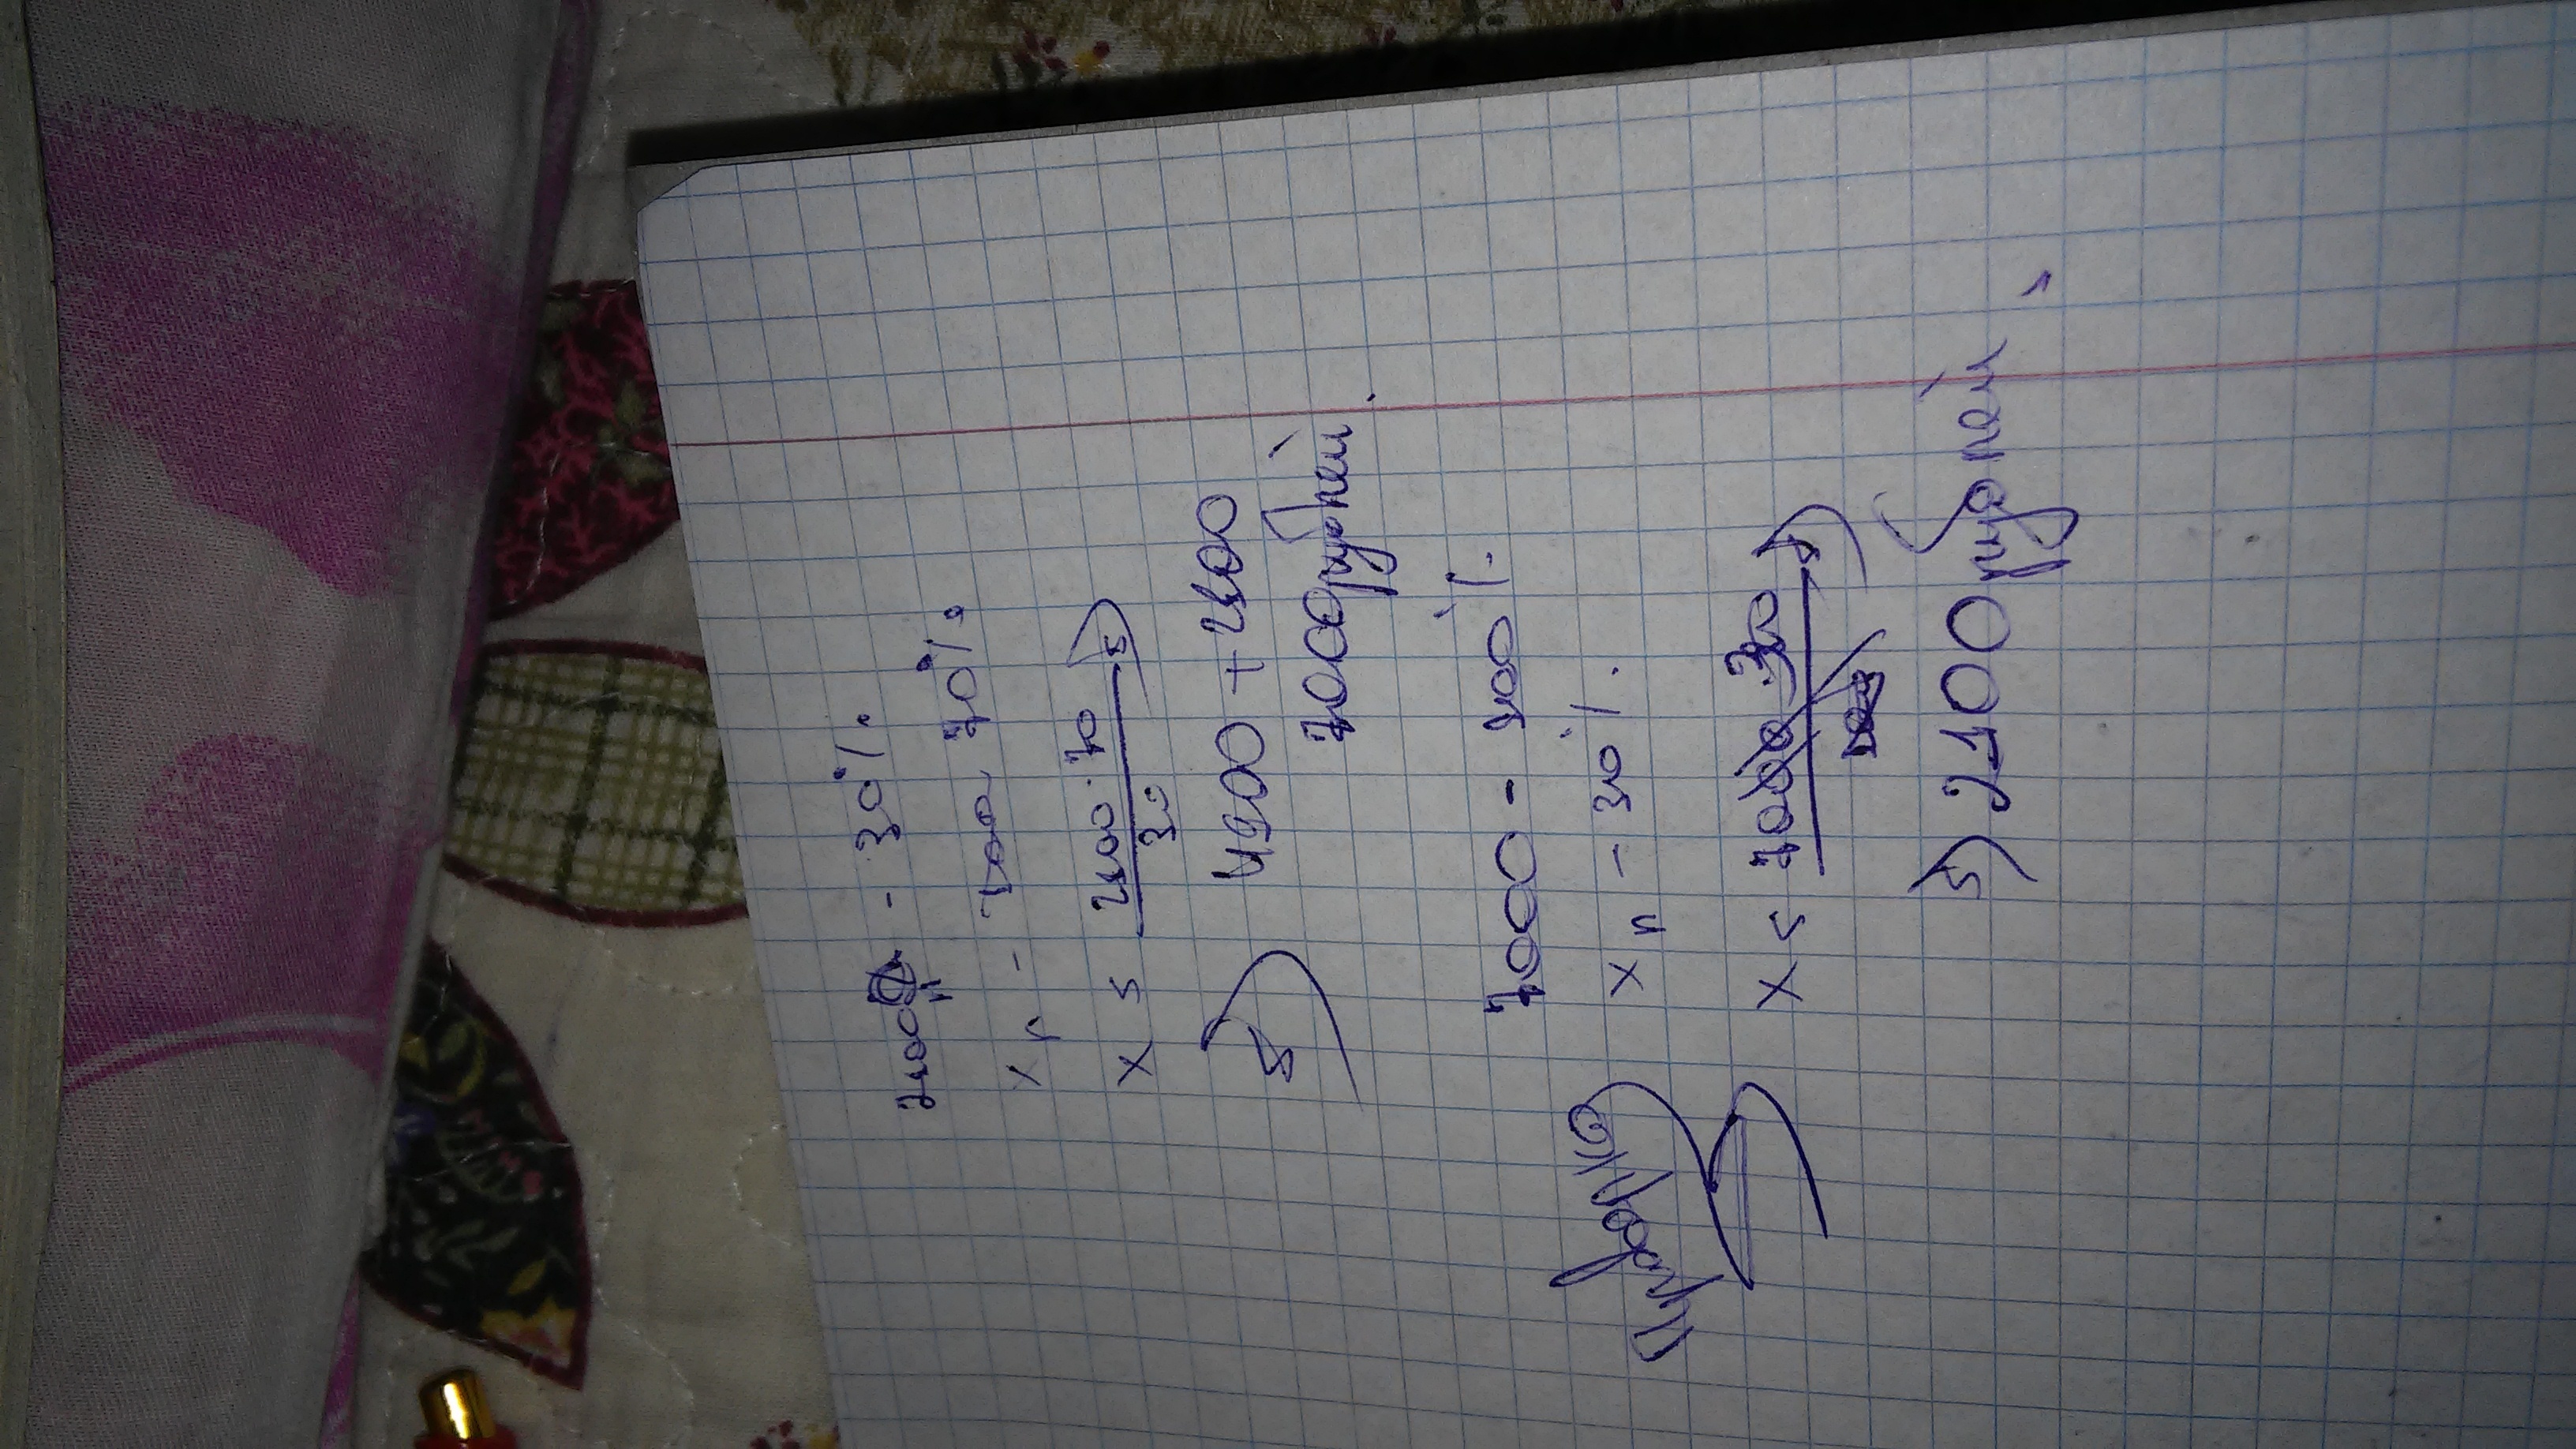 2100 - 30%
x р - 70%
x = 2100·70 / 30 =
= 4900 + 2100
7000 рублей.
7000 - 100%.
Проверка
x р - 30%.
x = 7000·30 / 100 =
= 2100 рублей,